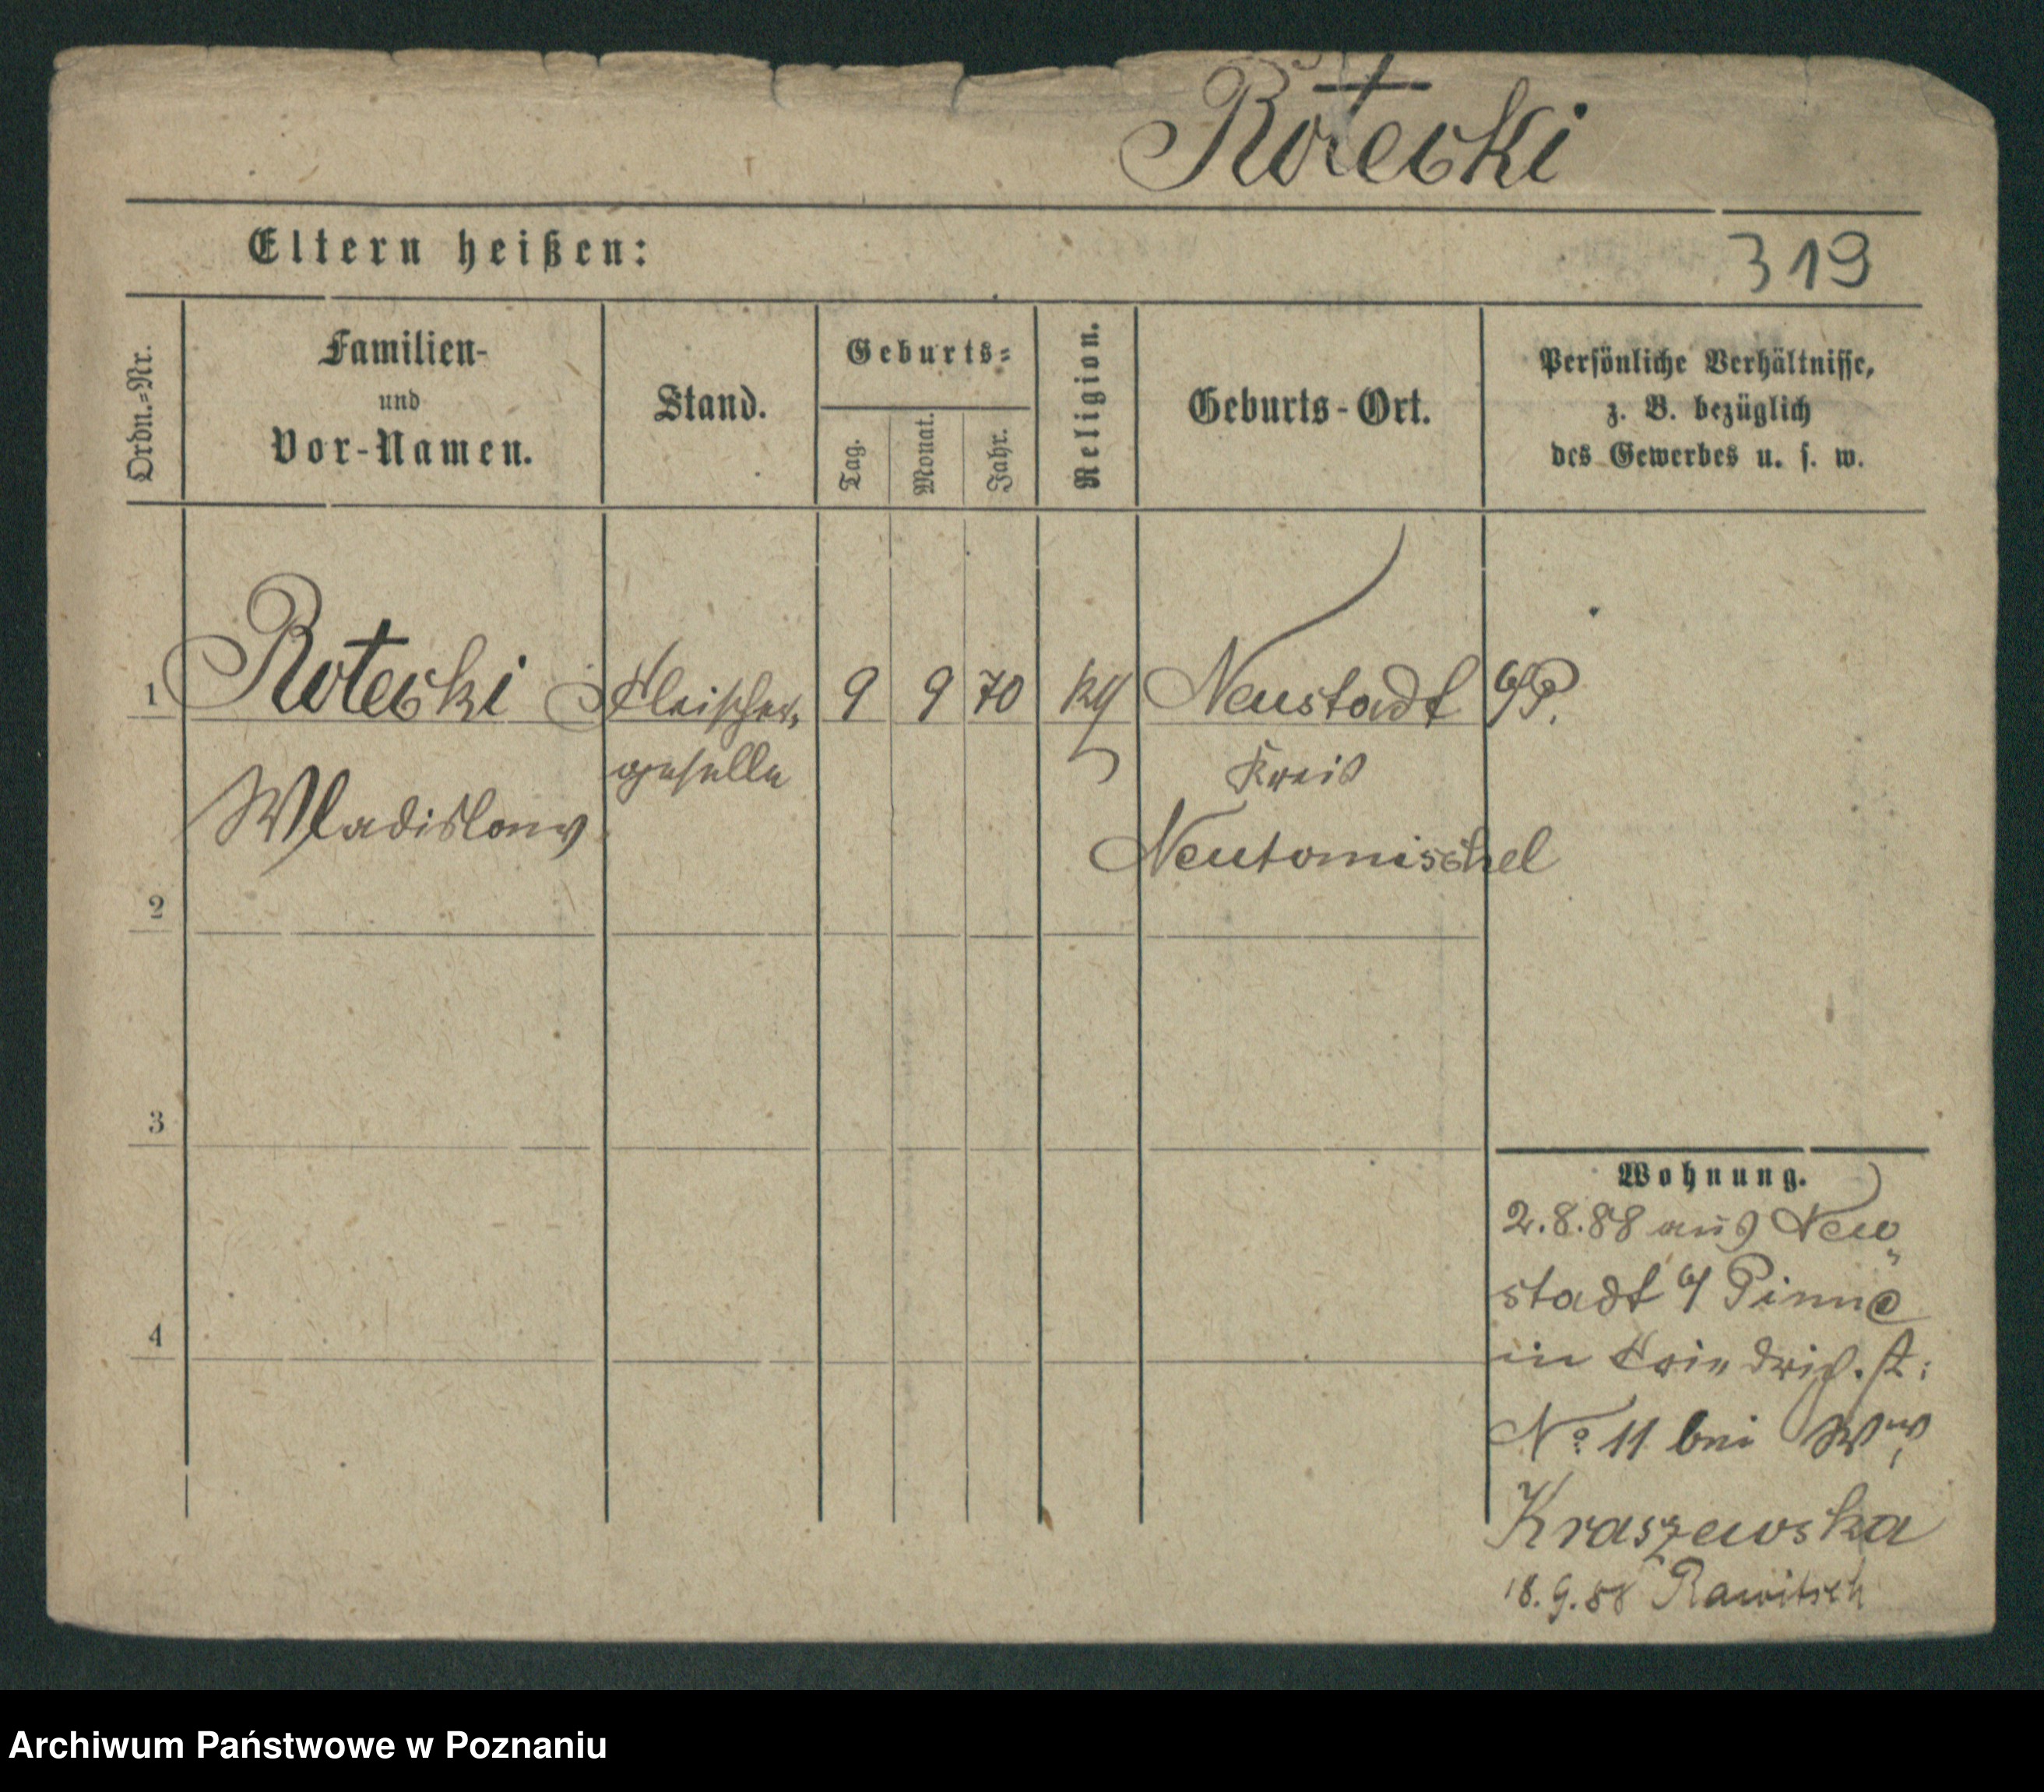 Rotecki
Eltern heißen:
319
Ordn.-Nr.
Familien-
und
Vor-Namen.
Stand.
Geburts-
Tag.
Monat.
Jahr.
Religion.
Geburts-Ort.
Persönliche Verhältnisse,
z. B. bezüglich
des Gewerbes u. s. w.
1 Rotecki Fleischer- 9 9 70 Neustadt b/P.
geselle Kreis
Wladislaw Neutomischel
2
3
4
Wohnung.
2.8.88 aus Neu-
stadt b/ Pinne
in Friedrich. st:
No 11 bei Ww.
Kraszewska
18.9.88 Rawitsch
Archiwum Państwowe w Poznaniu